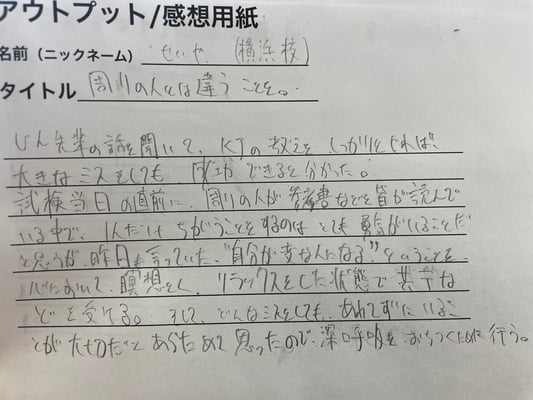 アウトプット/感想用紙
名前（ニックネーム） せいや (横浜校)
タイトル 周りの人とは違うことを。
じん先輩の話を聞いて、KJの教えをしっかりとれば、
大きなミスをしても、成功できると分かった。
試検当日の直前に、周りの人が参考書などを皆が読んで
いる中で、1人だけちがうことをするのはとても勇気がいることだ
と思うが、昨日も言っていた、"自分が支はんになる"ということを
心において、瞑想をし、リラックスをした状態で
どを受ける。そして、どんなミスをしても、あわてずにいるこ
とが大切だとあらためて思ったので、深呼吸をおちつくために行う。